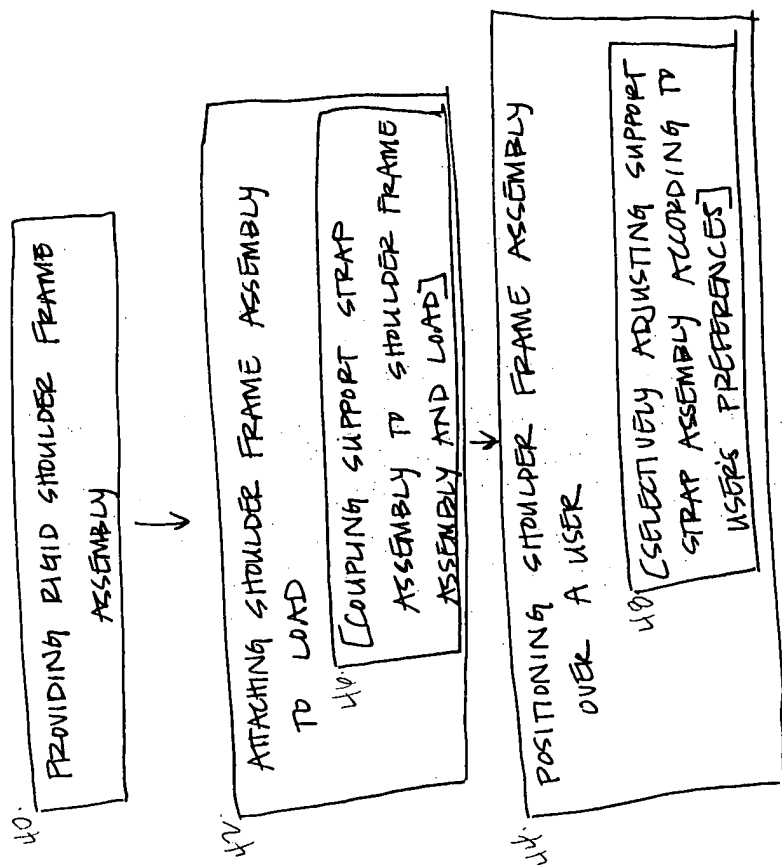 40.
PROVIDING RIGID SHOULDER FRAME
ASSEMBLY
42.
ATTACHING SHOULDER FRAME ASSEMBLY
TO LOAD
46.
[COUPLING SUPPORT STRAP
ASSEMBLY TO SHOULDER FRAME
ASSEMBLY AND LOAD]
44.
POSITIONING SHOULDER FRAME ASSEMBLY
OVER A USER
48.
[SELECTIVELY ADJUSTING SUPPORT
STRAP ASSEMBLY ACCORDING TO
USER'S PREFERENCES]